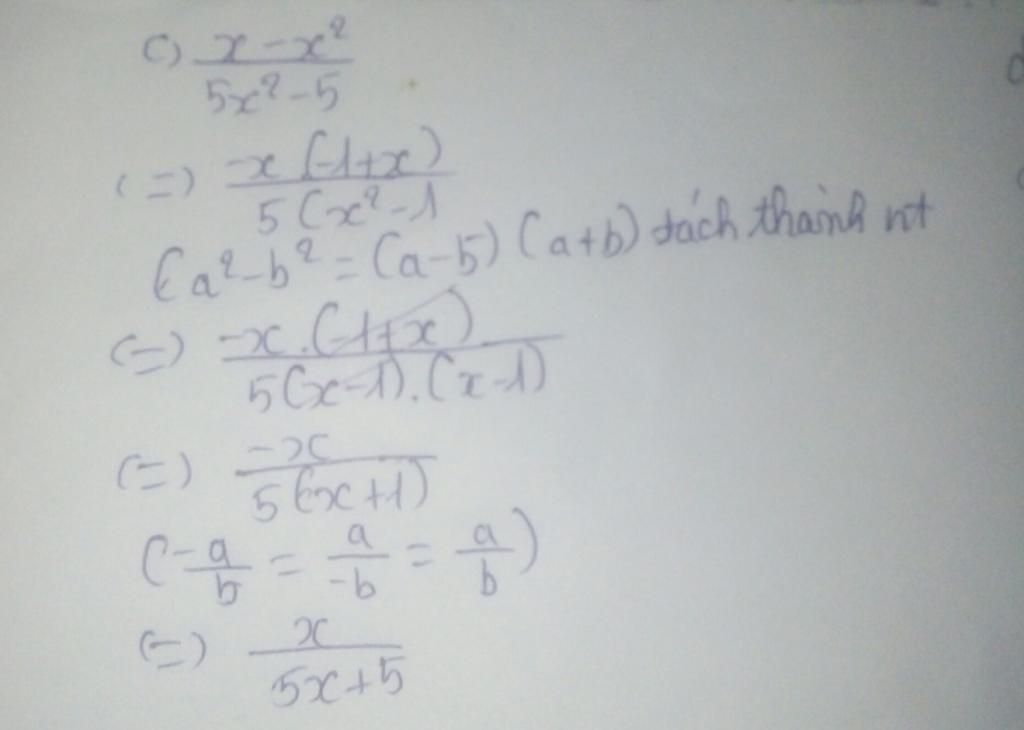 c) \frac{x-x^2}{5x^2-5}
(=) \frac{-x(-1+x)}{5(x^2-1}
(a^2-b^2=(a-b)(a+b) tách thành nt
(=) \frac{-x.(-1+x)}{5(x-1).(x-1)}
(=) \frac{-x}{5(x+1)}
(-\frac{a}{b}=\frac{a}{-b}=\frac{a}{b})
(=) \frac{x}{5x+5}